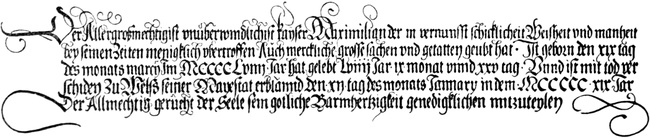 Der Allergroßmechtigist vnüberwindlichist kayser Maximilian der in vernunfft schicklicheit Weisheit vnd manheit
bey seinen Zeiten menigklich vbertroffen Auch merckliche grosse sachen vnd getatten geubt hat · Ist geborn den xix tag
des monats marcy Im MCCCC Lviiij Jar hat gelebt Lviiij Jar ix monat vnnd xxv tag · Vnnd ist mit tod ver
schiden Zu Wels seiner Mayestat erblannd den xij tag des monats January in dem MCCCCC · xix Jar
Der Allmechtig gerucht der Seele sein gotliche Barmhertzigkeit genedigklichen mitzuteylen